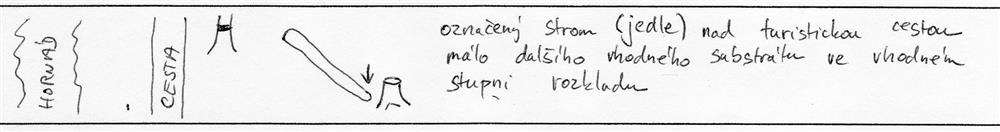 HORNÁD
CESTA
označený strom (jedle) nad turistickou cestou
málo dalšího vhodného substrátu ve vhodném
stupni rozkladu